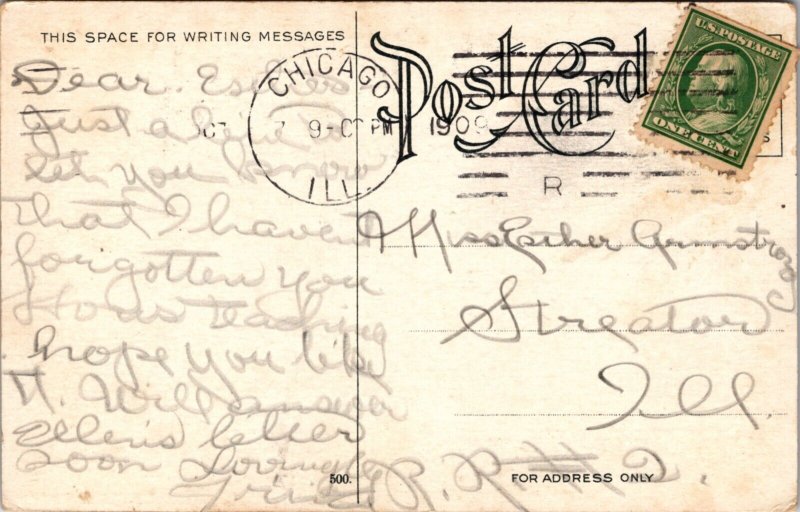 THIS SPACE FOR WRITING MESSAGES
Post Card
U.S. POSTAGE
ONE CENT
CHICAGO
7 9-0 PM 1909
ILL.
R
Dear Esther
Just a
let you know
that I haven't
forgotten you
teaching
hope you like
it. Will answer
Ellen's letter
soon Loving
Miss Esther Armstrong
Streator
Ill.
R. R. #2.
500.
FOR ADDRESS ONLY